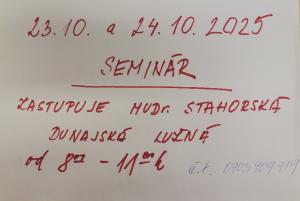 23.10. a 24.10. 2025
SEMINÁR
ZASTUPUJE MUDr. STAHORSKÁ
DUNAJSKÁ LUŽNÁ
od 8⁰⁰ - 11⁰⁰ h
č.t. 0903909919